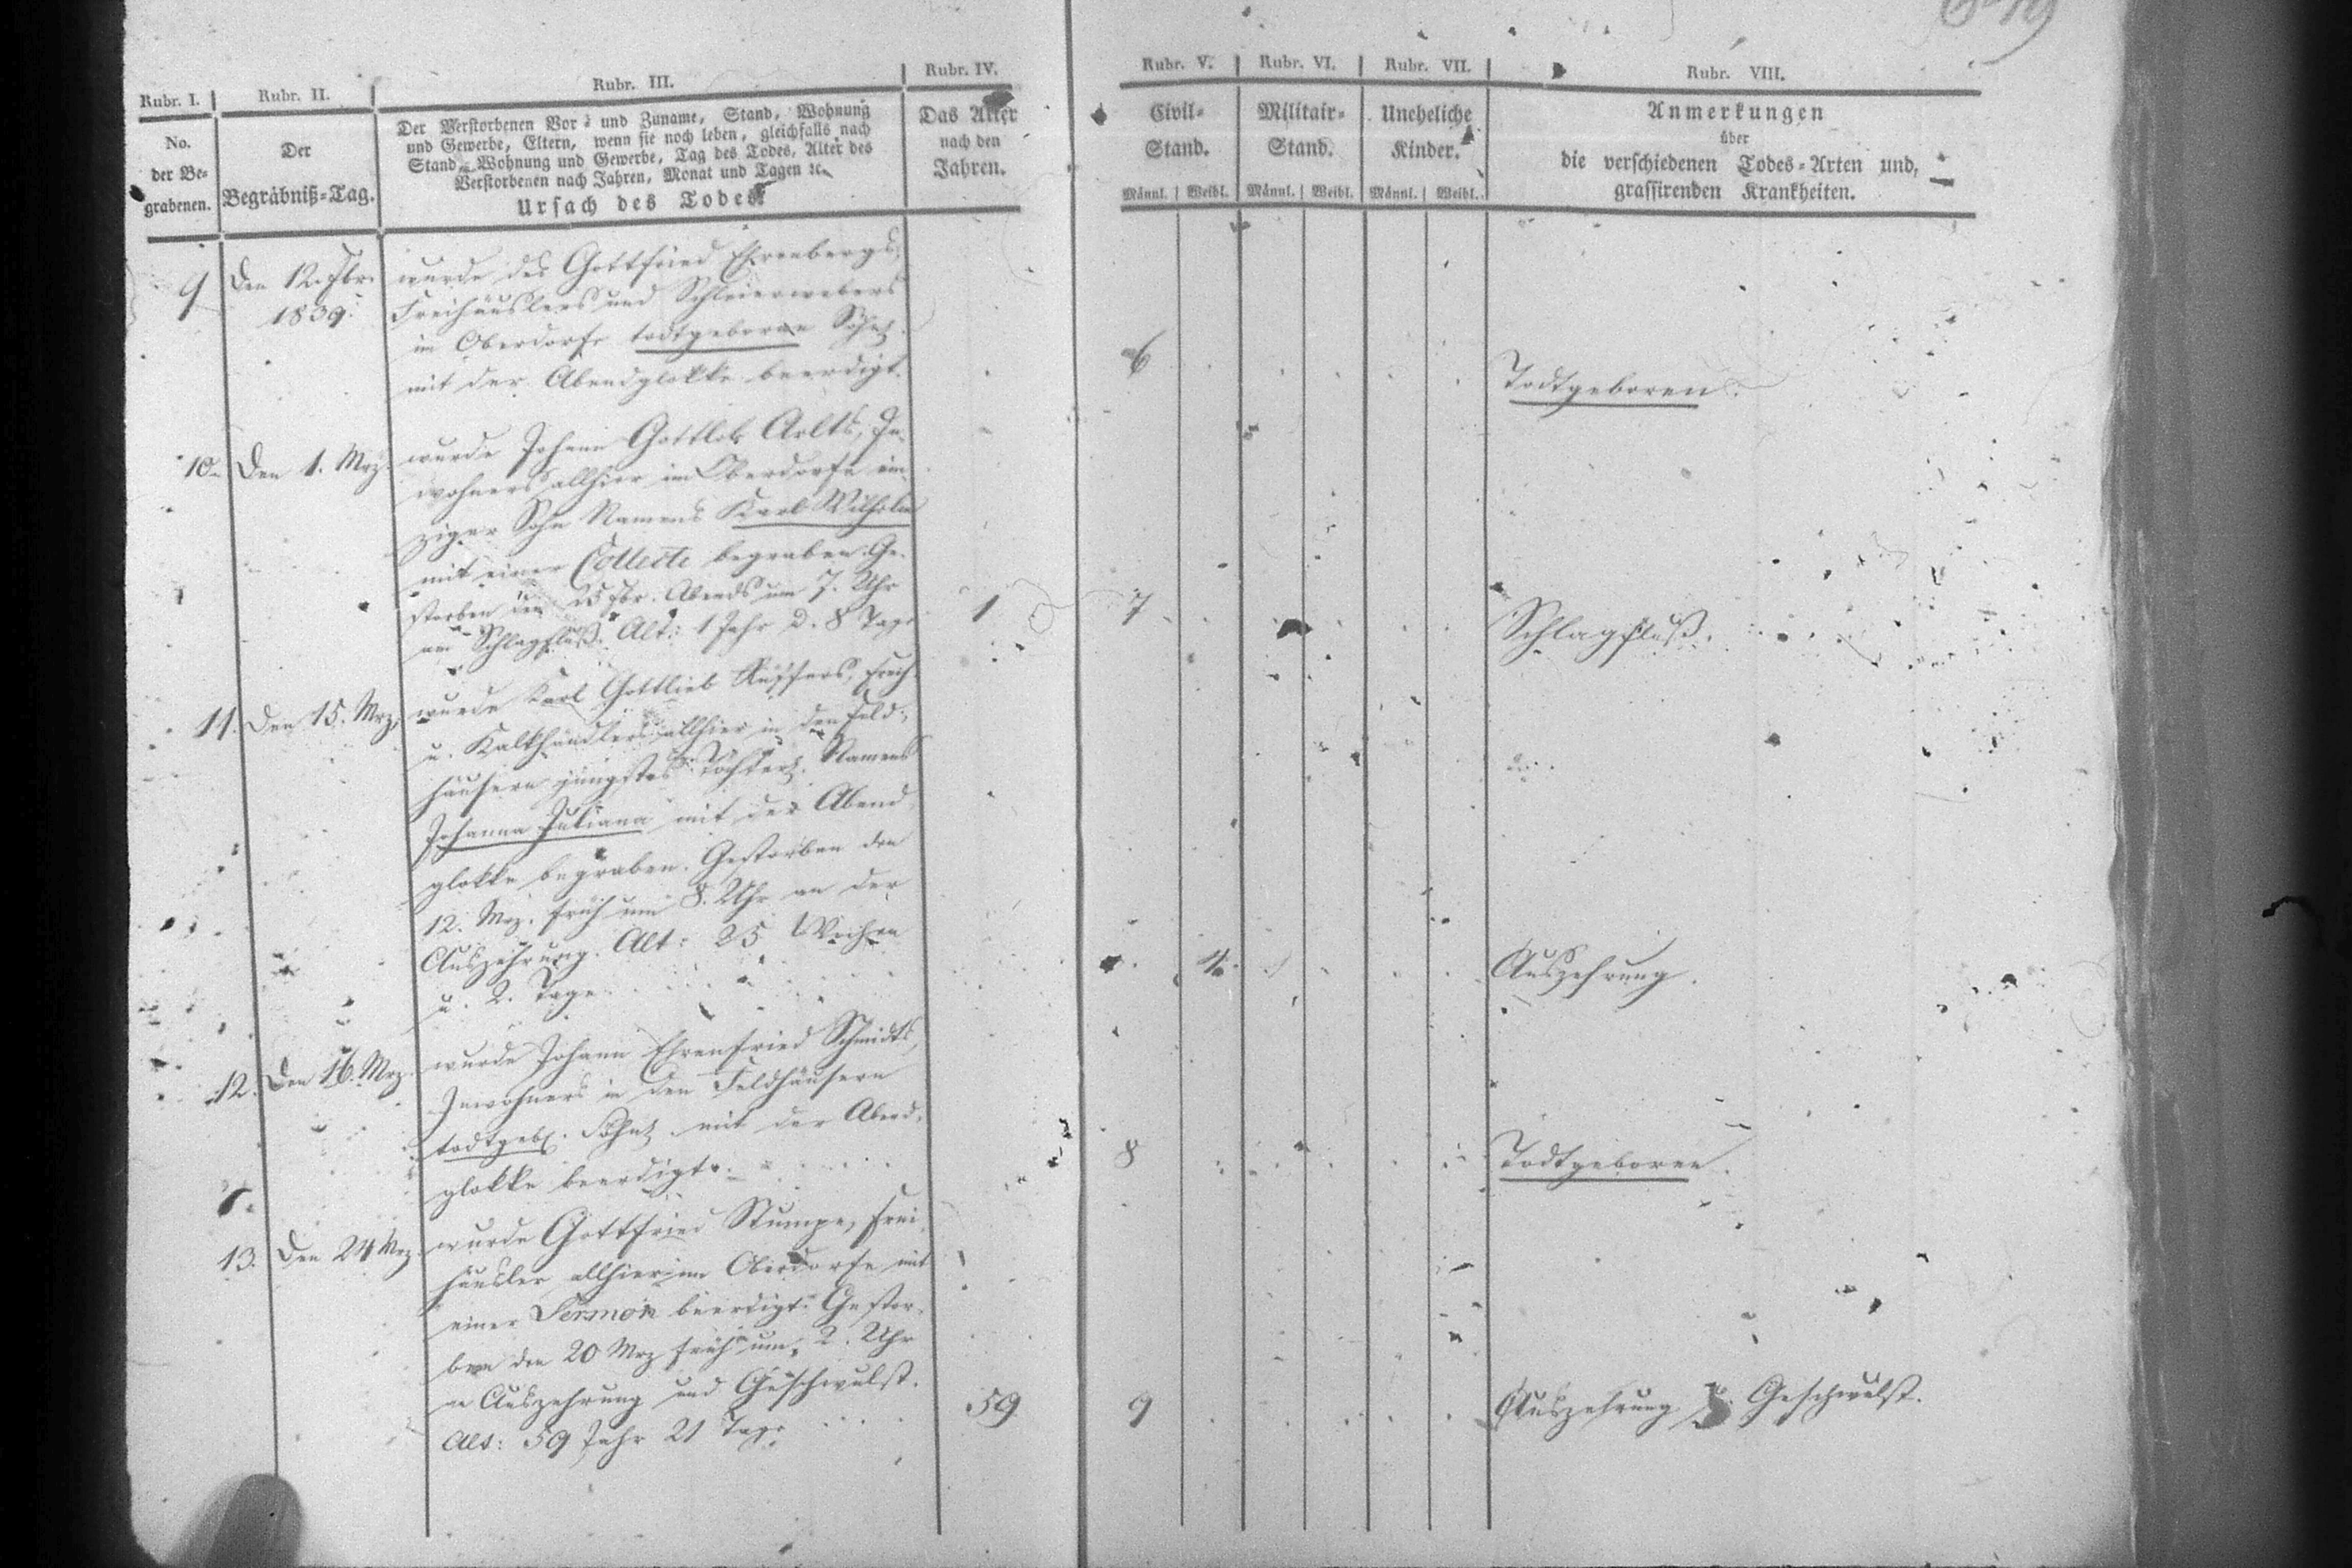 Rubr. I. Rubr. II. Rubr. III. Rubr. IV. Rubr. V. Rubr. VI. Rubr. VII. Rubr. VIII.
No.
der Be-
grabenen.
Der
Begräbniß-Tag.
Der Verstorbenen Vor- und Zuname, Stand, Wohnung
und Gewerbe, Eltern, wenn sie noch leben, gleichfalls nach
Stand, Wohnung und Gewerbe, Tag des Todes, Alter des
Verstorbenen nach Jahren, Monat und Tagen ꝛc.
Ursach des Todes.
Das Alter
nach den
Jahren.
Civil-
Stand.
Männl. Weibl.
Militair-
Stand.
Männl. Weibl.
Uneheliche
Kinder.
Männl. Weibl.
Anmerkungen
über
die verschiedenen Todes-Arten und
grassirenden Krankheiten.
9 Den 12. Fbr. 1839.
wurde des Gottfried Ehrenbergs,
Freihäuslers und Schleierwebers
im Oberdorfe todtgeborne Söhnl.
mit der Abendglokke beerdigt.
6 Todtgeboren.
10. Den 1. Mrz.
wurde Johann Gottlob Arlts, In-
wohners allhier im Oberdorfe ein-
ziger Sohn Namens Karl Wilhelm
mit einer Collecte begraben. Ge-
storben den 25 Fbr. Abends um 7. Uhr
am Schlagfluß. Alt: 1 Jahr 8 Tage
1 7 Schlagfluß.
11. Den 15. Mrz.
wurde Karl Gottlieb Freih.
u. Kalkhändlers allhier in den Feld-
häusern jüngstes Töchterl. Namens
Johanna Juliana mit der Abend
glokke begraben. Gestorben den
12. Mrz. früh um 8. Uhr an der
Auszehrung. Alt: 25 Wochen
u. 2. Tage.
4. Auszehrung.
12. Den 16. Mrz.
wurde Johann Ehrenfried Schmidts,
Inwohners in den Feldhäusern
todtgeb. Söhnl. mit der Abend-
glokke beerdigt.
8 Todtgeboren.
13. Den 24 Mrz.
wurde Gottfried Stumpe, Frei-
häusler allhier im Oberdorfe mit
einer Sermon beerdigt. Gestor-
ben den 20 Mrz früh um 2. Uhr
an Auszehrung und Geschwulst.
Alt: 59 Jahr 21 Tage
59 9 Auszehrung u. Geschwulst.